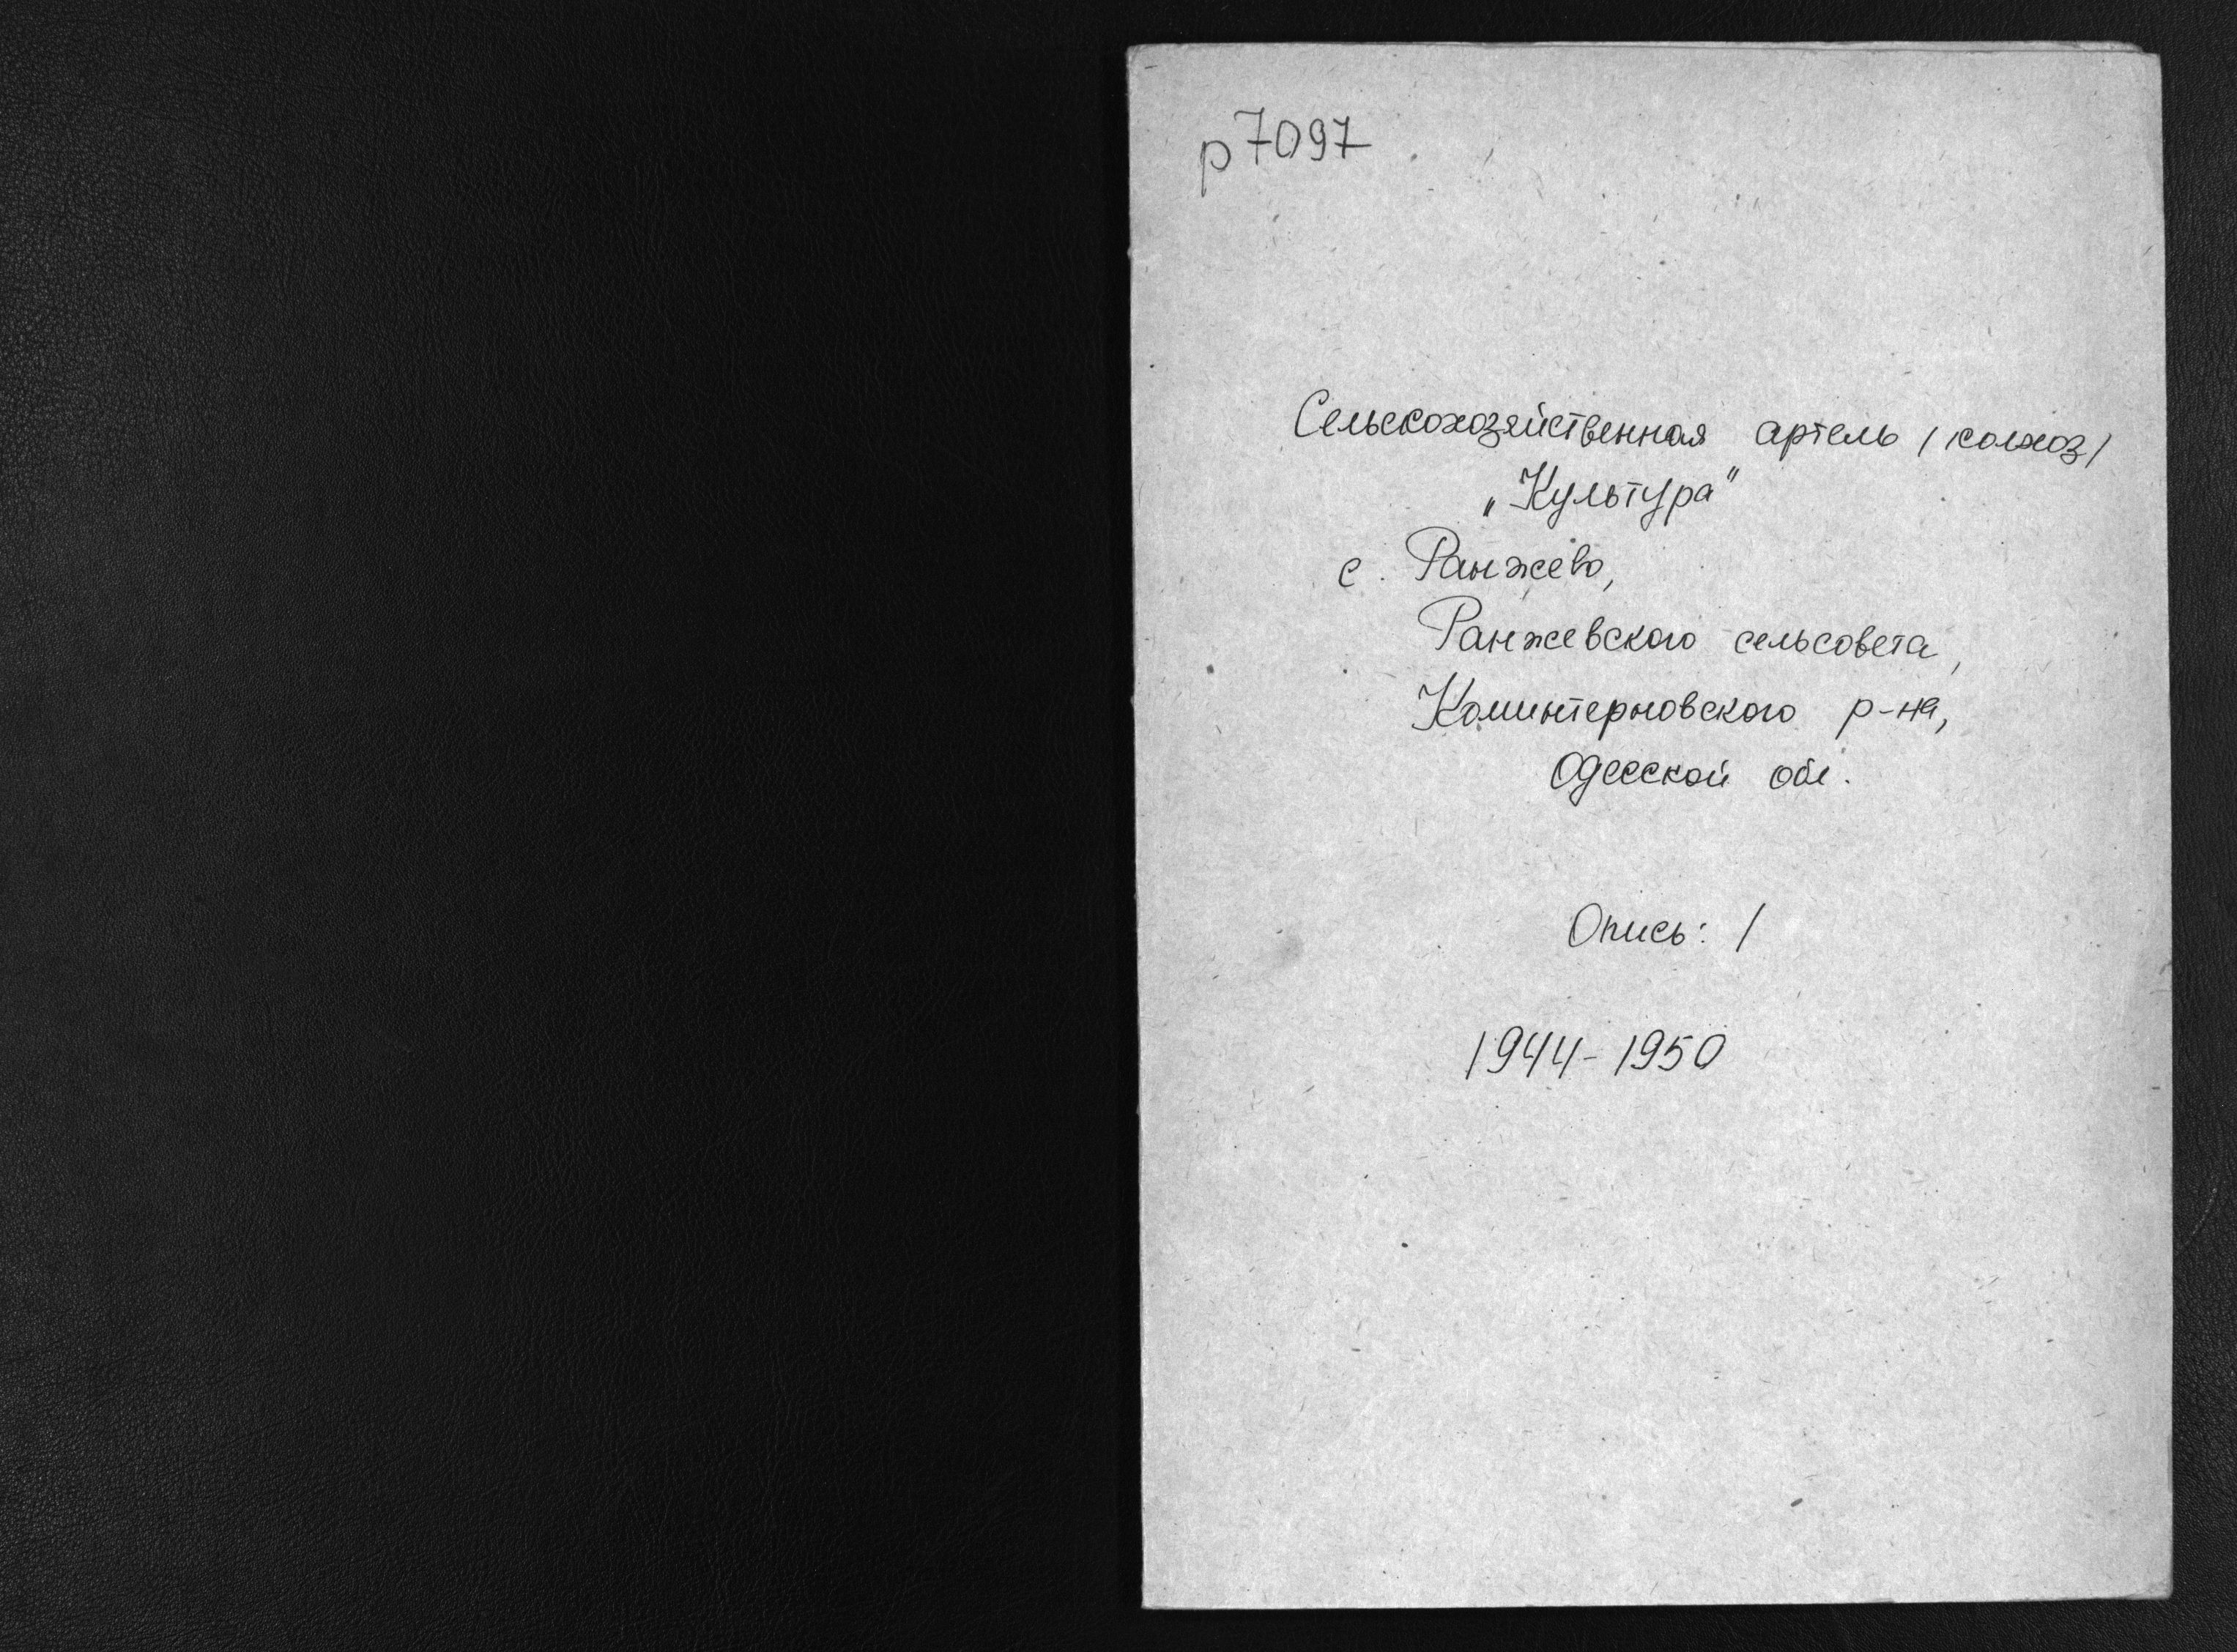 р7097
Сельскохозяйственная артель /колхоз/
„Культура"
с. Ранжево,
Ранжевского сельсовета,
Коминтерновского р-на,
Одесской обл.
Опись: 1
1944-1950